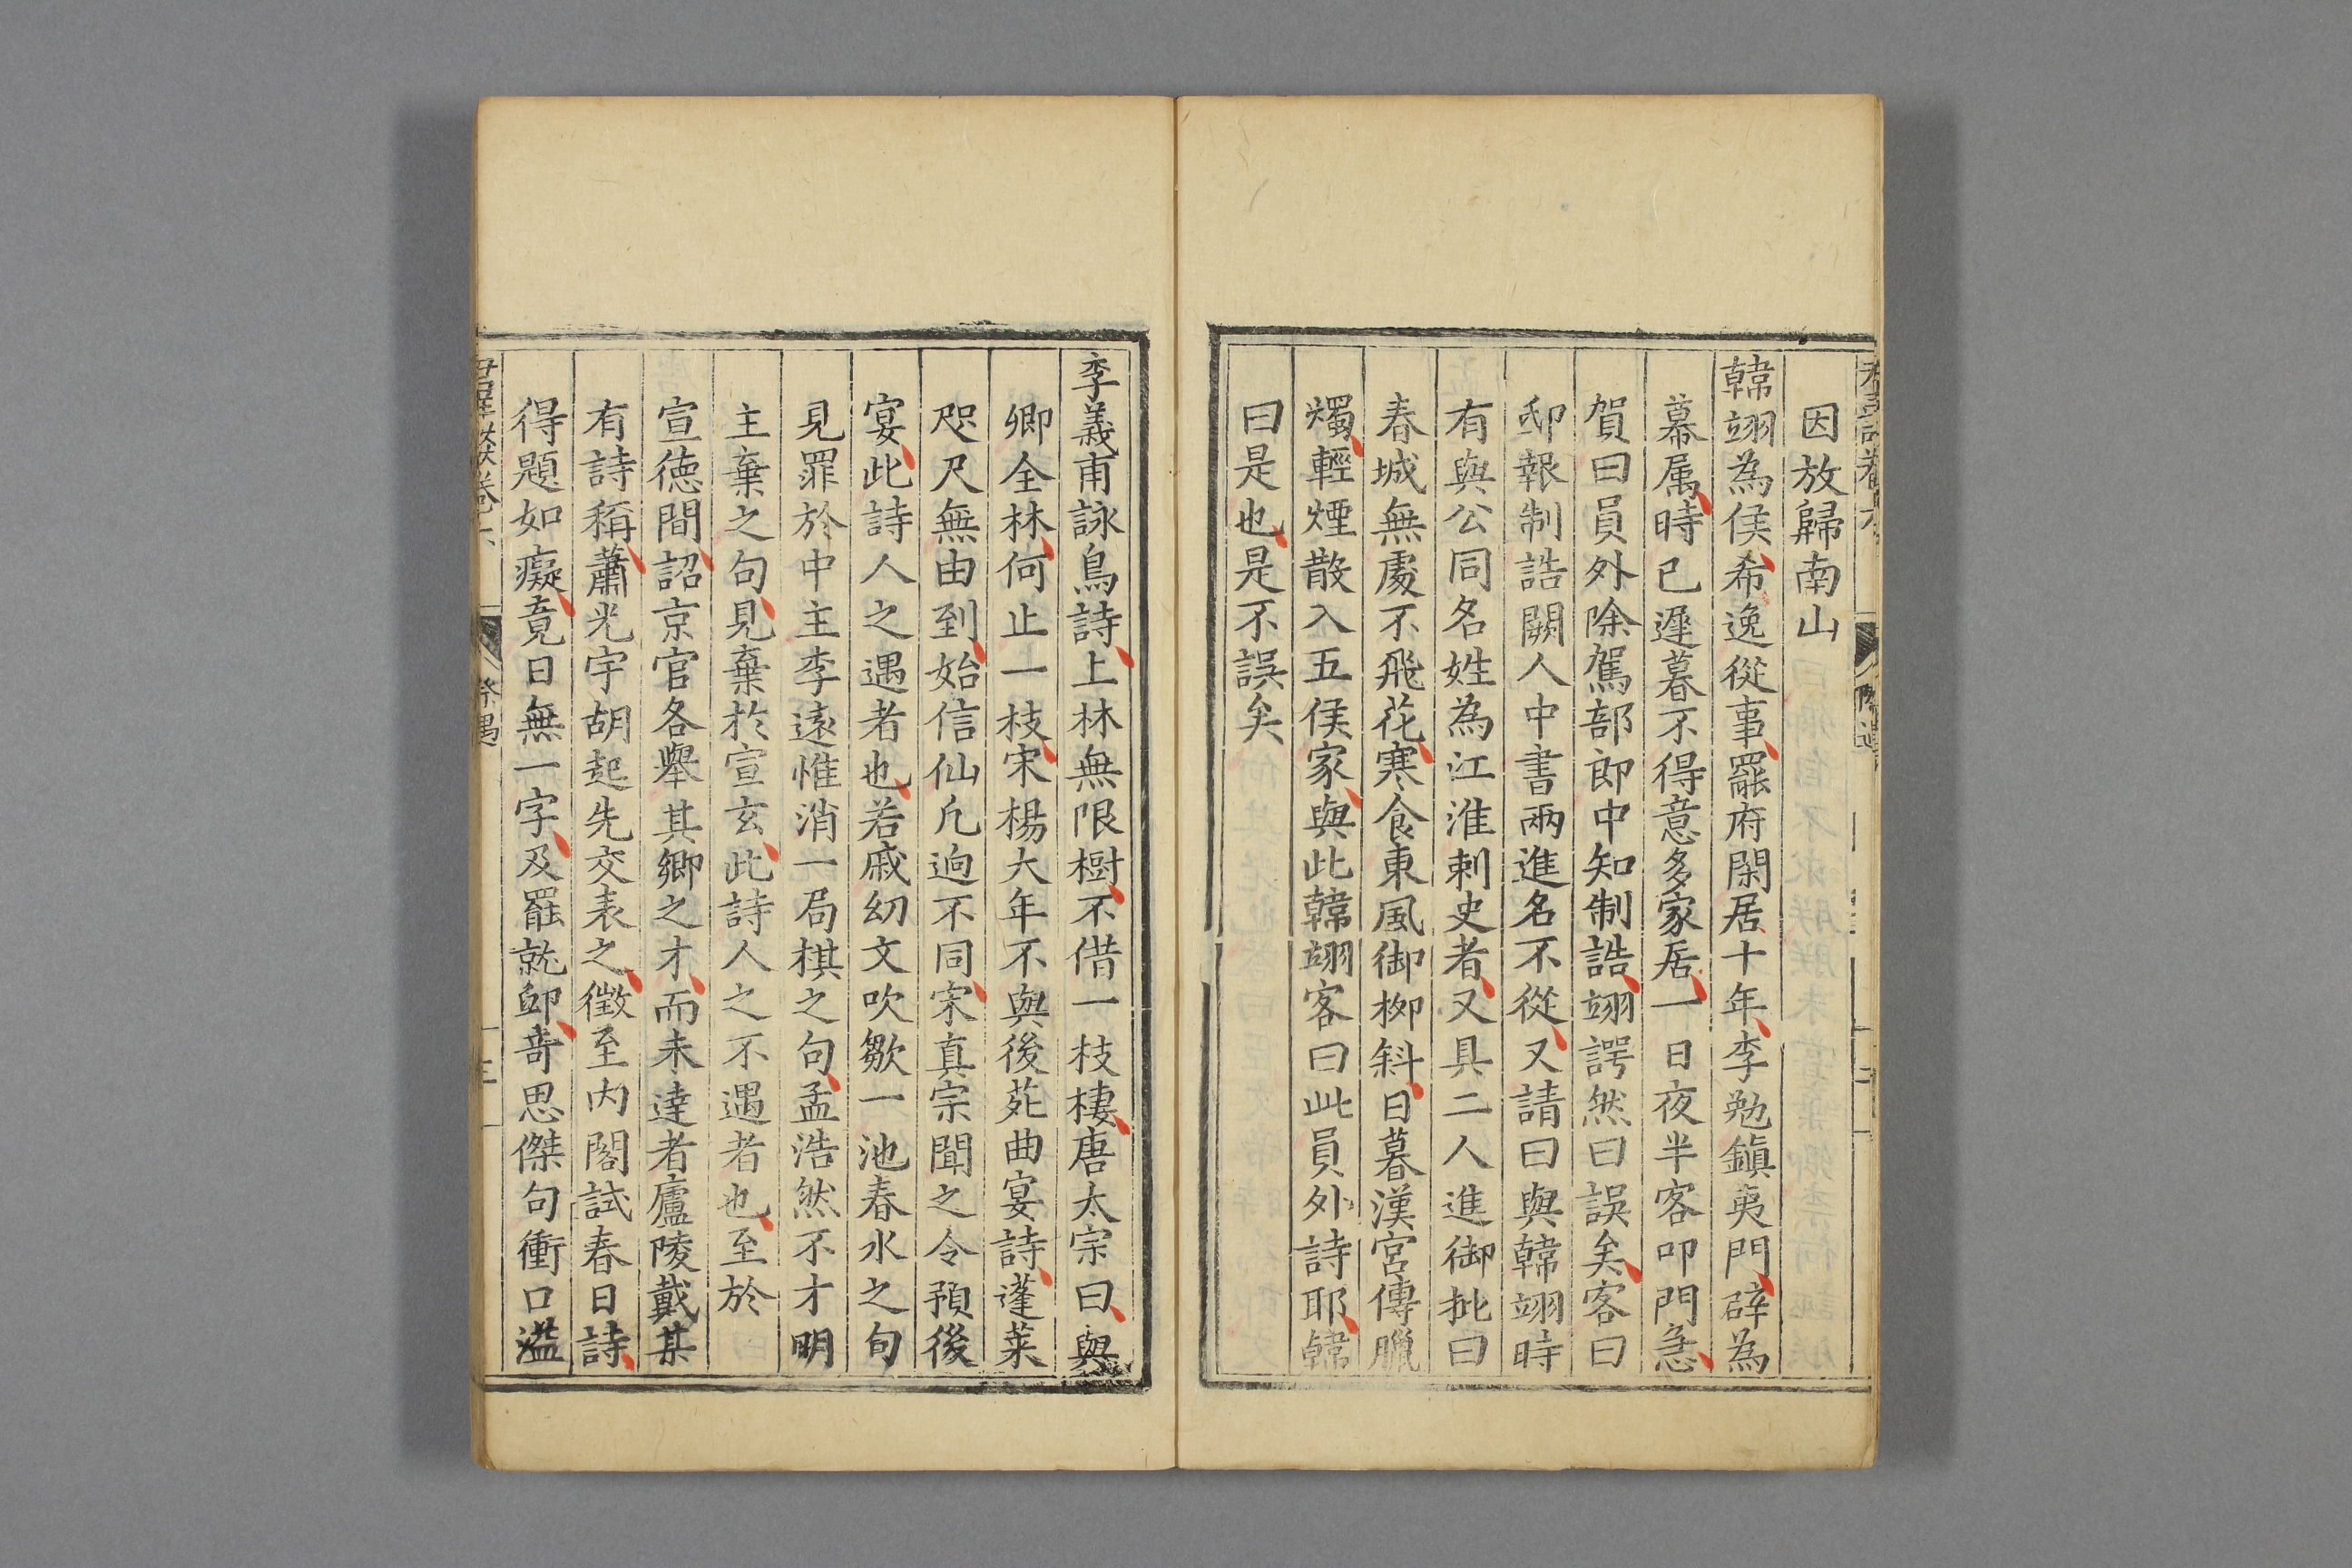 因放歸南山
韓翃為侯希逸從事罷府閑居十年李勉鎮夷門辟為
幕属時已遲暮不得意多家居一日夜半客叩門急
賀曰員外除駕部郎中知制誥翃愕然曰誤矣客曰
邸報制誥闕人中書兩進名不從又請曰與韓翃時
有與公同名姓為江淮刺史者又具二人進御批曰
春城無處不飛花寒食東風御柳斜日暮漢宮傳臘
燭輕煙散入五侯家與此韓翃客曰此員外詩耶韓
曰是也是不誤矣
李義甫詠鳥詩上林無限樹不借一枝棲唐太宗曰與
卿全林何止一枝宋楊大年不與後苑曲宴詩蓬萊
咫尺無由到始信仙凡逈不同宋真宗聞之令預後
宴此詩人之遇者也若戚幼文吹皺一池春水之句
見罪於中主李遠惟消一局棋之句孟浩然不才明
主棄之句見棄於宣玄此詩人之不遇者也至於
宣德間詔京官各舉其卿之才而未達者廬陵戴某
有詩稱蕭光宇胡起先交表之徵至内閣試春日詩
得題如癡竟日無一字及罷就卸奇思傑句衝口溢